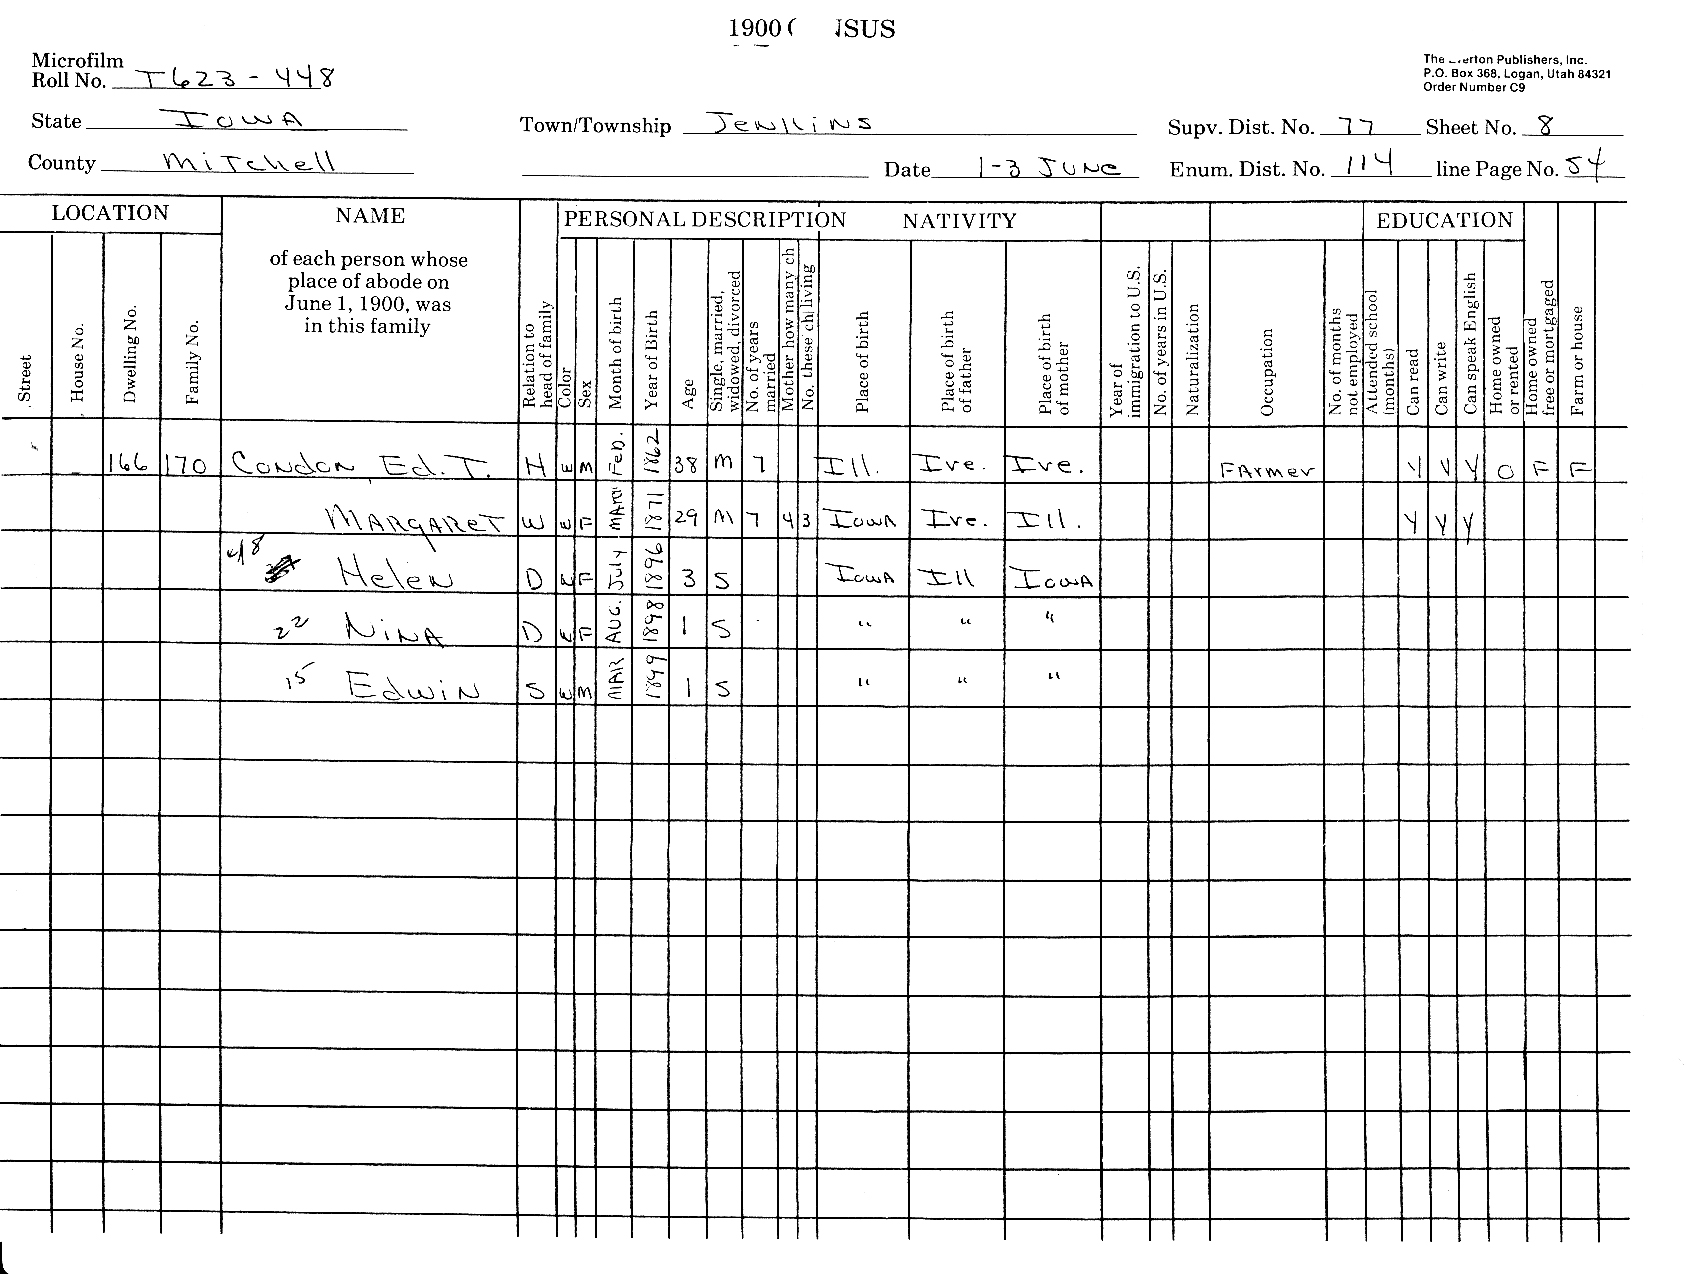 1900 ( NSUS
Microfilm
Roll No. T623-448
The Everton Publishers, Inc.
P.O. Box 368, Logan, Utah 84321
Order Number C9
State Iowa Town/Township Jenkins Supv. Dist. No. 77 Sheet No. 8
County Mitchell Date 1-3 June Enum. Dist. No. 114 line Page No. 54
LOCATION NAME PERSONAL DESCRIPTION NATIVITY EDUCATION
of each person whose
place of abode on
June 1, 1900, was
in this family
Street
House No.
Dwelling No.
Family No.
Relation to
head of family
Color
Sex
Month of birth
Year of Birth
Age
Single, married,
widowed, divorced
No. of years
married
Mother how many ch
No. these ch living
Place of birth
Place of birth
of father
Place of birth
of mother
Year of
immigration to U.S.
No. of years in U.S.
Naturalization
Occupation
No. of months
not employed
Attended school
(months)
Can read
Can write
Can speak English
Home owned
or rented
Home owned
free or mortgaged
Farm or house
166 170 Condon Ed. T. H W M Feb. 1862 38 M 7 Ill. Ire. Ire. Farmer Y Y Y O F F
Margaret W W F Mar 1871 29 M 7 4 3 Iowa Ire. Ill. Y Y Y
48 Helen D W F July 1896 3 S Iowa Ill Iowa
22 Nina D W F Aug. 1898 1 S " " "
15 Edwin S W M Mar 1899 1 S " " "